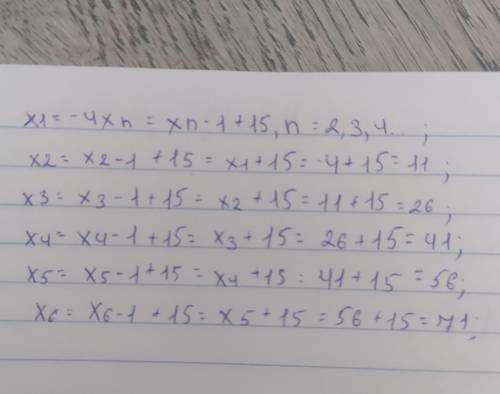 x1 = -4xn = xn-1+15, n = 2, 3, 4... ;
x2 = x2-1 +15 = x1+15 = -4+15 = 11 ;
x3 = x3-1+15 = x2 +15 = 11+15 = 26 ;
x4 = x4-1+15 = x3+15 = 26+15 = 41;
x5 = x5-1+15 = x4 +15 = 41+15 = 56;
x6 = x6-1 +15 = x5+15 = 56+15 = 71;